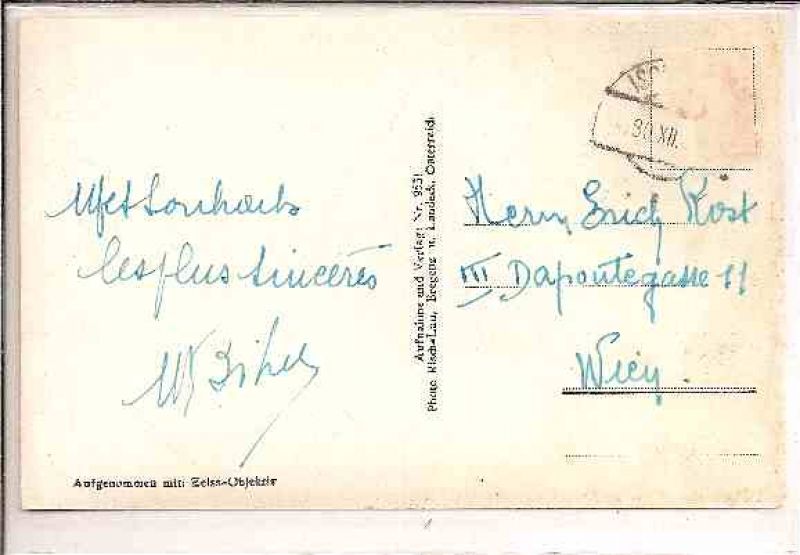 Mes souhaits
les plus sincères
Aufgenommen mit: Zeiss-Objektiv
Aufnahme und Verlag: Nr. 9551
Photo Risch-Lau, Bregenz u. Landeck, Österreich
30.XII.
Herrn Erich Rost
III Dapontegasse 11
Wien.